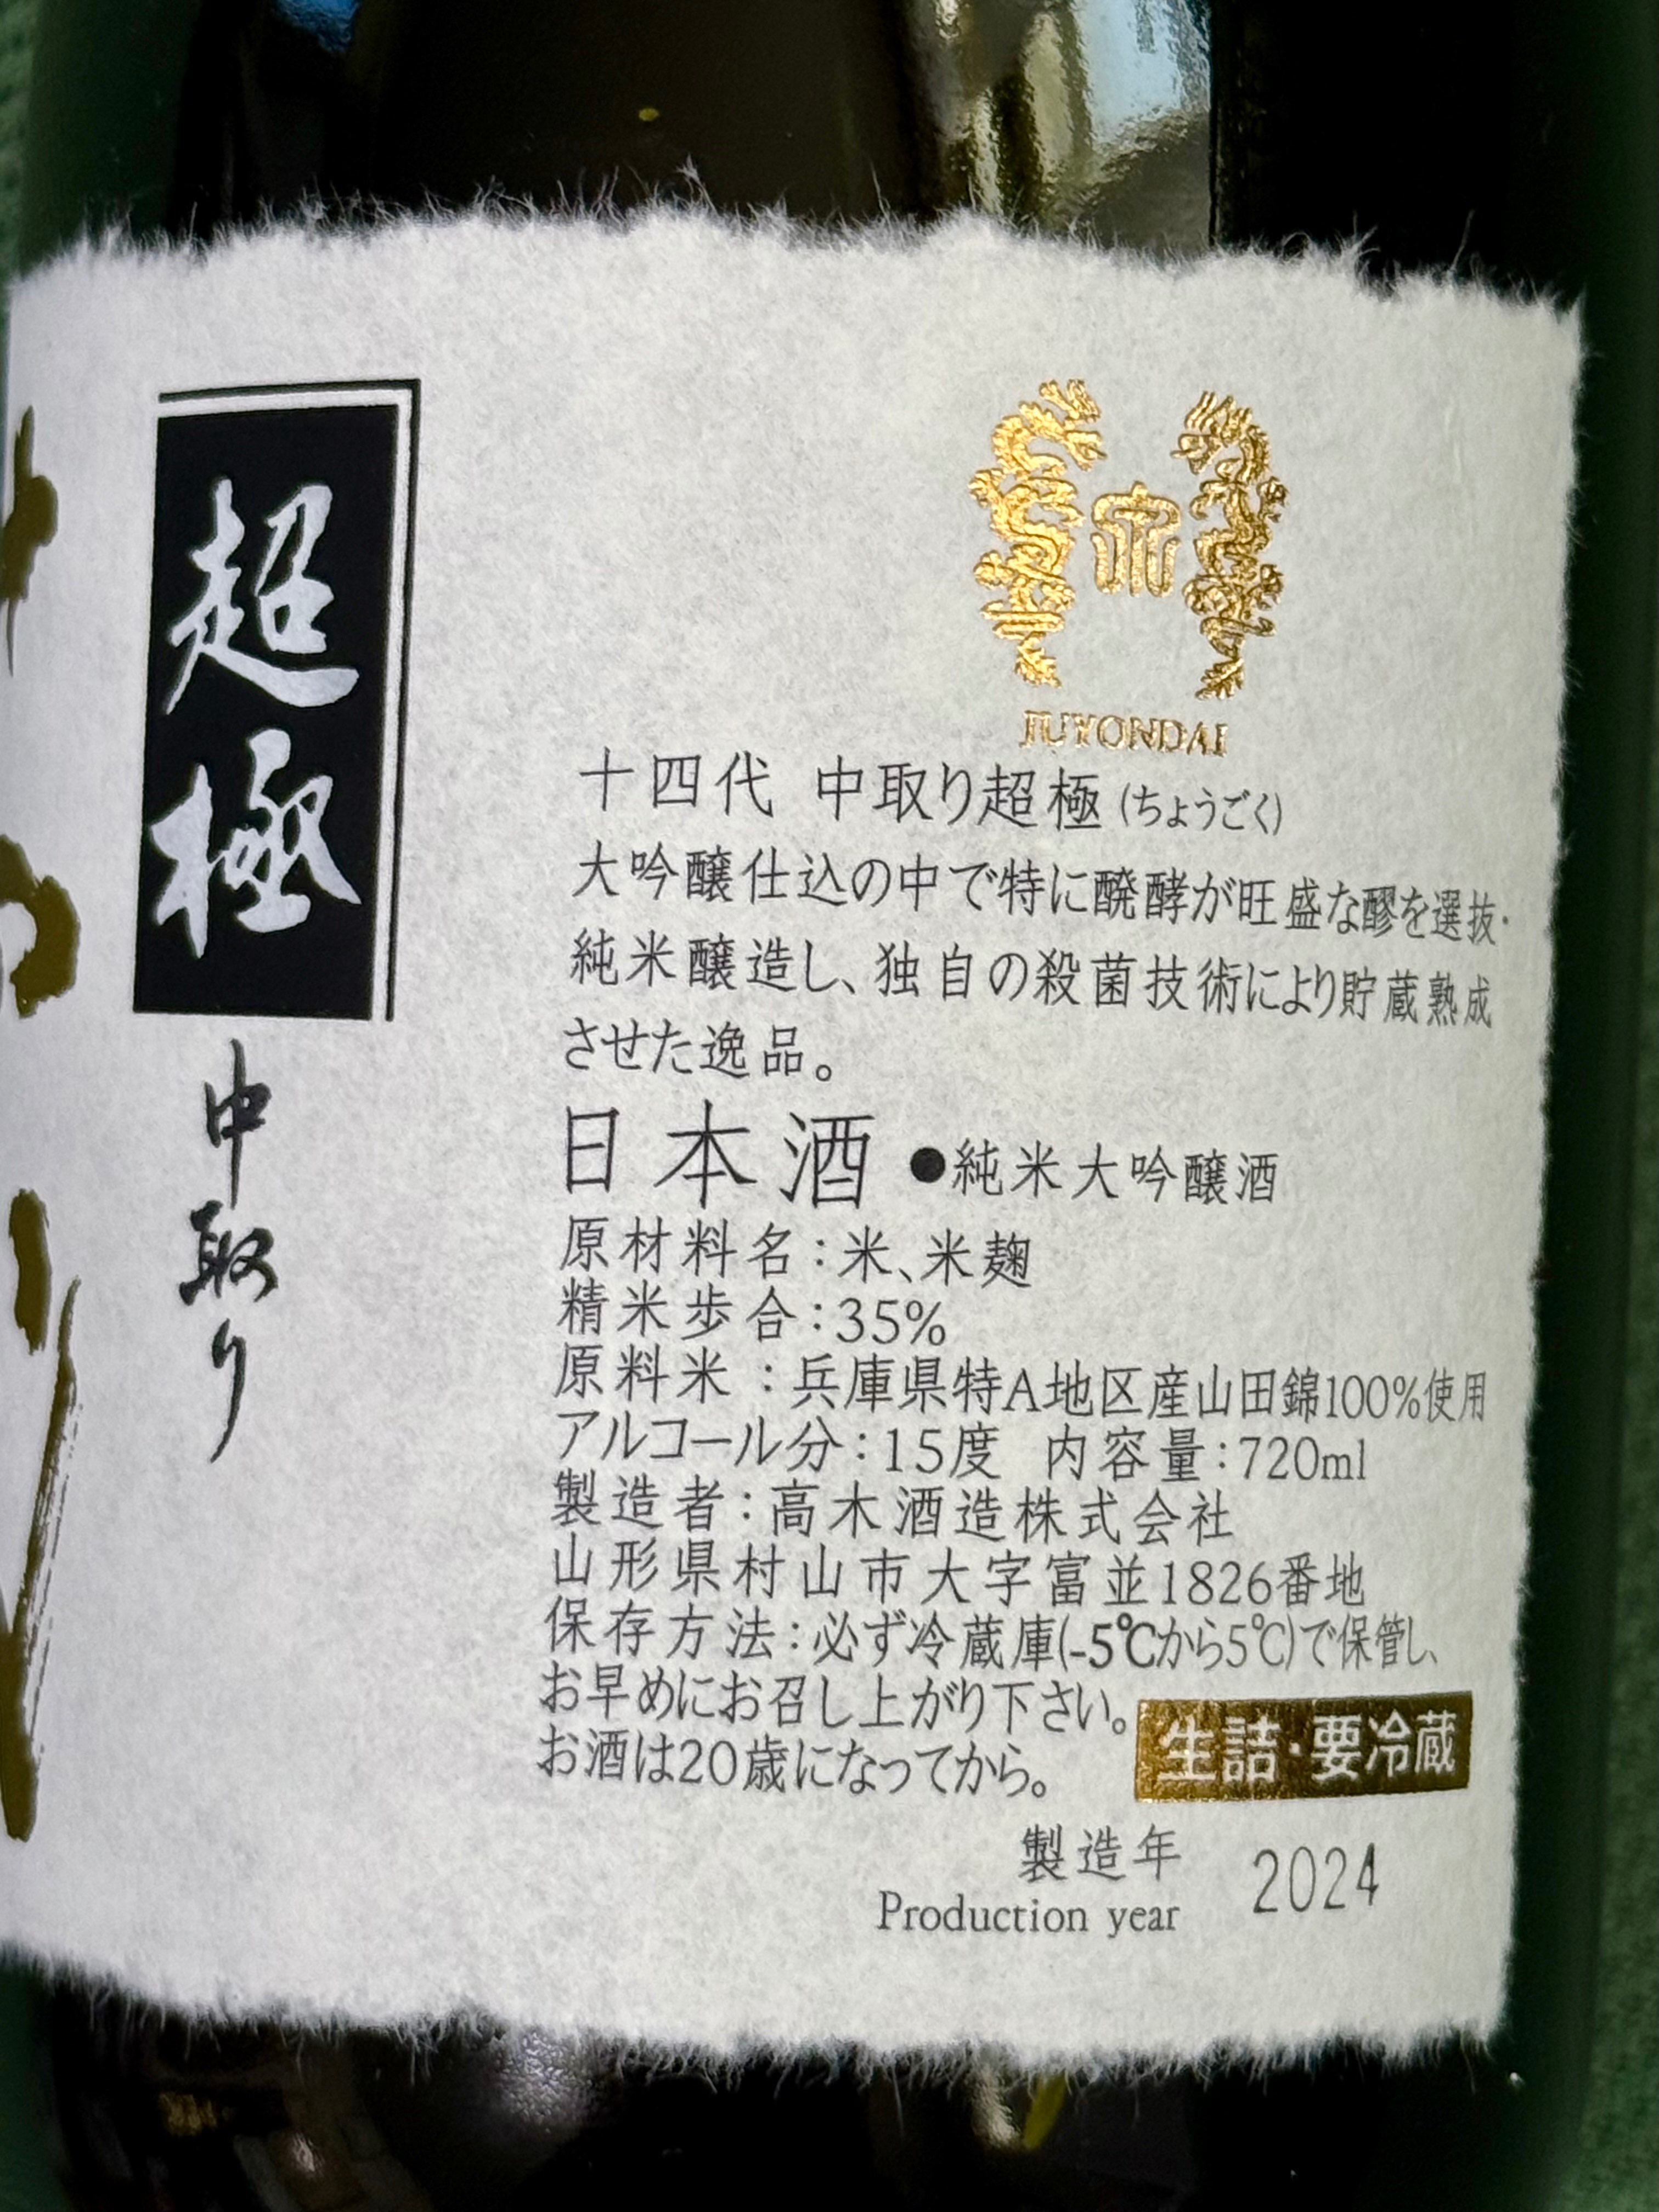 超極
中取り
JUYONDAI
十四代 中取り超極(ちょうごく)
大吟醸仕込の中で特に醗酵が旺盛な醪を選抜・
純米醸造し、独自の殺菌技術により貯蔵熟成
させた逸品。
日本酒 ●純米大吟醸酒
原材料名:米、米麹
精米歩合:35%
原料米:兵庫県特A地区産山田錦100%使用
アルコール分:15度 内容量:720ml
製造者:高木酒造株式会社
山形県村山市大字富並1826番地
保存方法:必ず冷蔵庫(-5℃から5℃)で保管し、
お早めにお召し上がり下さい。
お酒は20歳になってから。
生詰・要冷蔵
製造年
Production year 2024